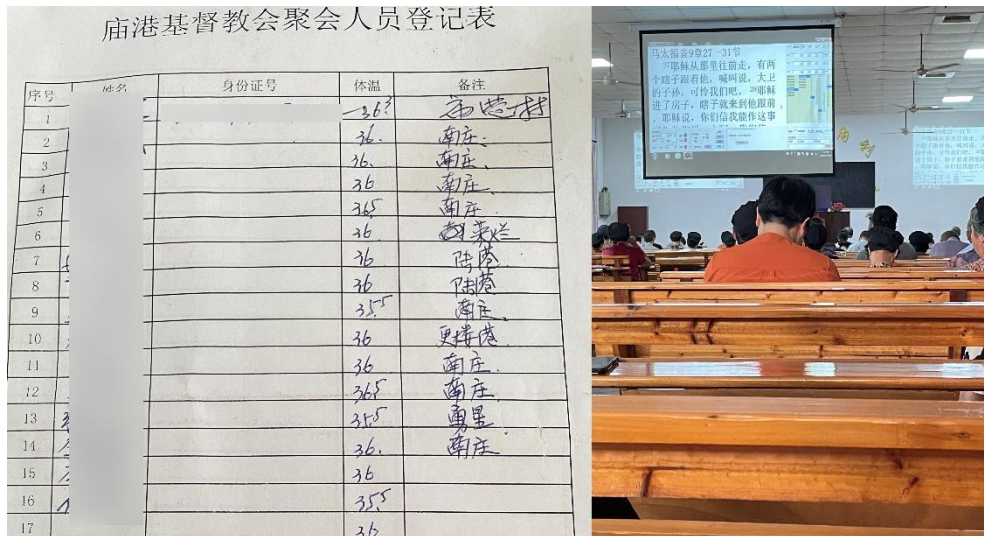 庙港基督教会聚会人员登记表
序号 姓名 身份证号 体温 备注
1 36³
2 36. 南庄
3 36. 南庄
4 36 南庄
5 36.5 南庄
6 36
7 36 陆港
8 36 陆港
9 35.5 南庄
10 36 更楼港
11 36 南庄
12 36.5 南庄
13 35.5 勇星
14 36. 南庄
15 36
16 35.5
17 36
马太福音9章27-31节
27耶稣从那里往前走，有两
个瞎子跟着他，喊叫说，大卫
的子孙，可怜我们吧。28耶稣
进了房子，瞎子就来到他跟前
。耶稣说，你们信我能作这事